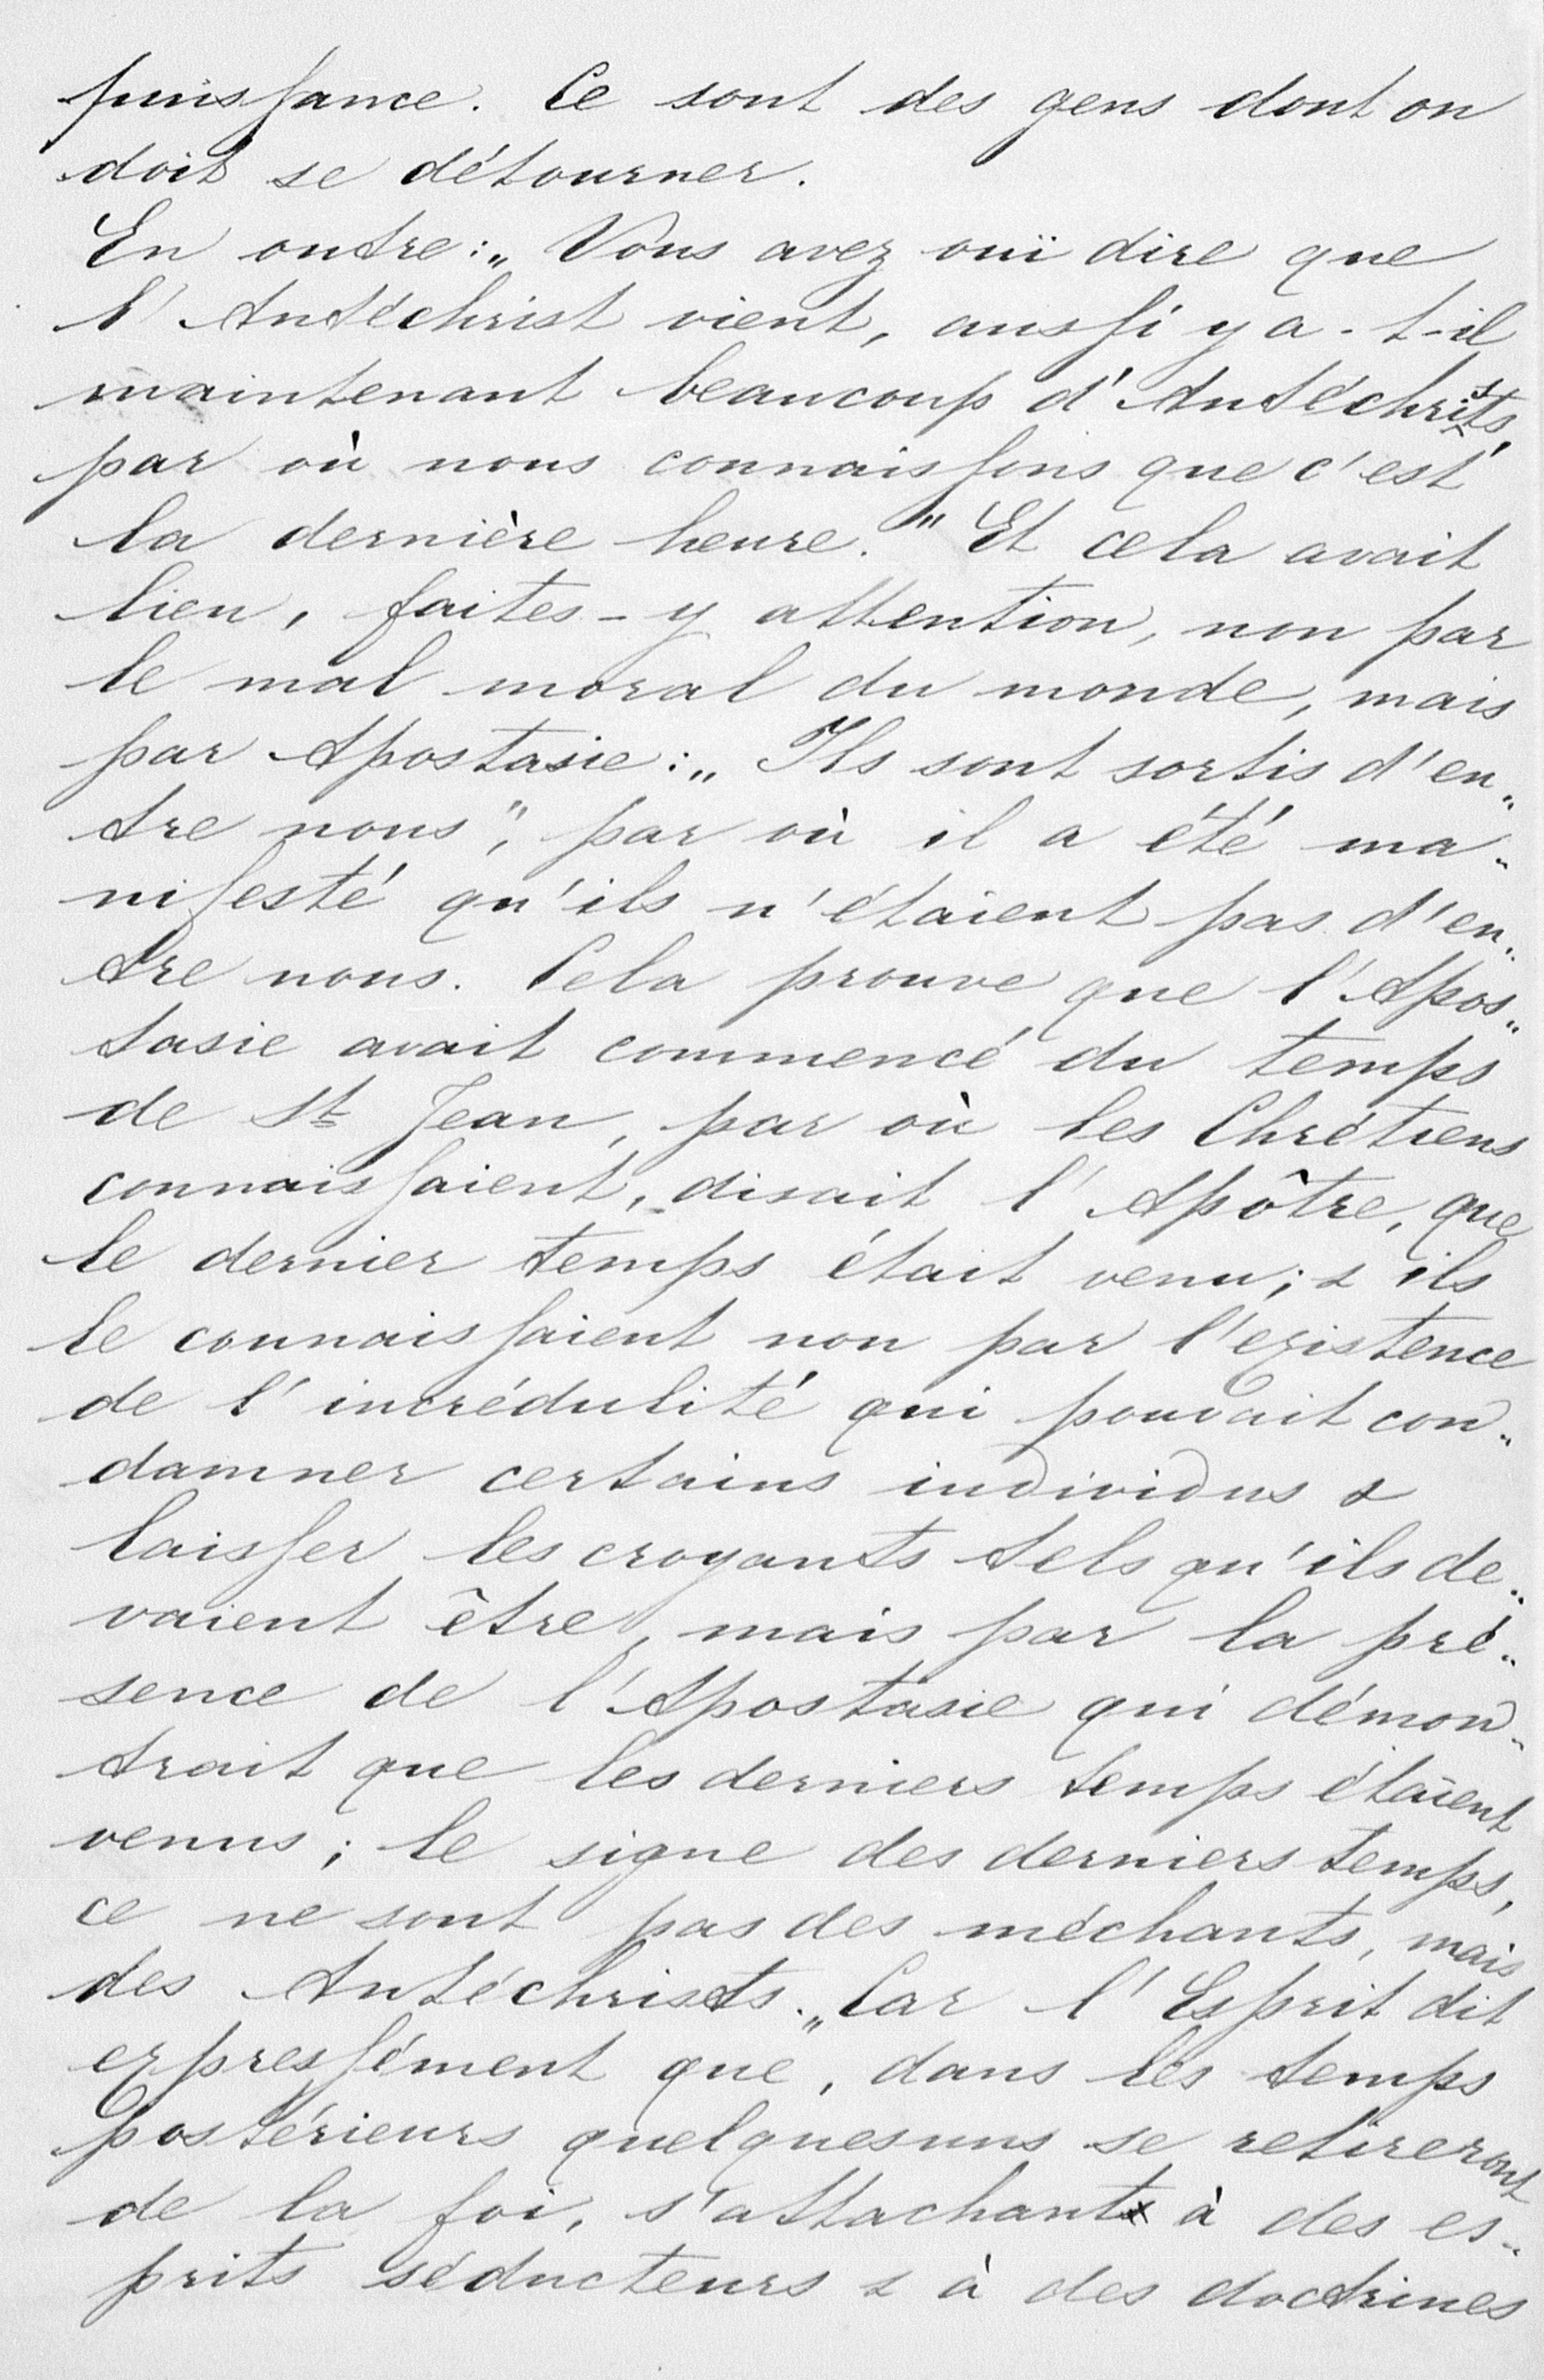 puissance. Ce sont des gens dont on
doit se détourner.
En outre: „ Vous avez ouï dire que
l'Antéchrist vient, aussi y a-t-il
maintenant beaucoup d'Antéchrists,
par où nous connaissons que c'est
la dernière heure." Et cela avait
lieu, faites-y attention, non par
le mal moral du monde, mais
par Apostasie: „ Ils sont sortis d'en„
tre nous", par où il a été ma„
nifesté qu'ils n'étaient pas d'en„
tre nous. Cela prouve que l'Apos„
tasie avait commencé du temps
de St Jean, par où les Chrétiens
connaissaient, disait l'Apôtre, que
le dernier temps était venu; & ils
le connaissaient non par l'existence
de l'incrédulité qui pouvait con„
damner certains individus &
laisser les croyants tels qu'ils de„
vaient être, mais par la pré„
sence de l'Apostasie qui démon„
trait que les derniers temps étaient
venus; le signe des derniers temps,
ce ne sont pas des méchants, mais
des Antéchrists. „Car l'Esprit dit
expressément que, dans les temps
postérieurs quelquesuns se retireront
de la foi, s'attachant à des es„
prits séducteurs & à des doctrines